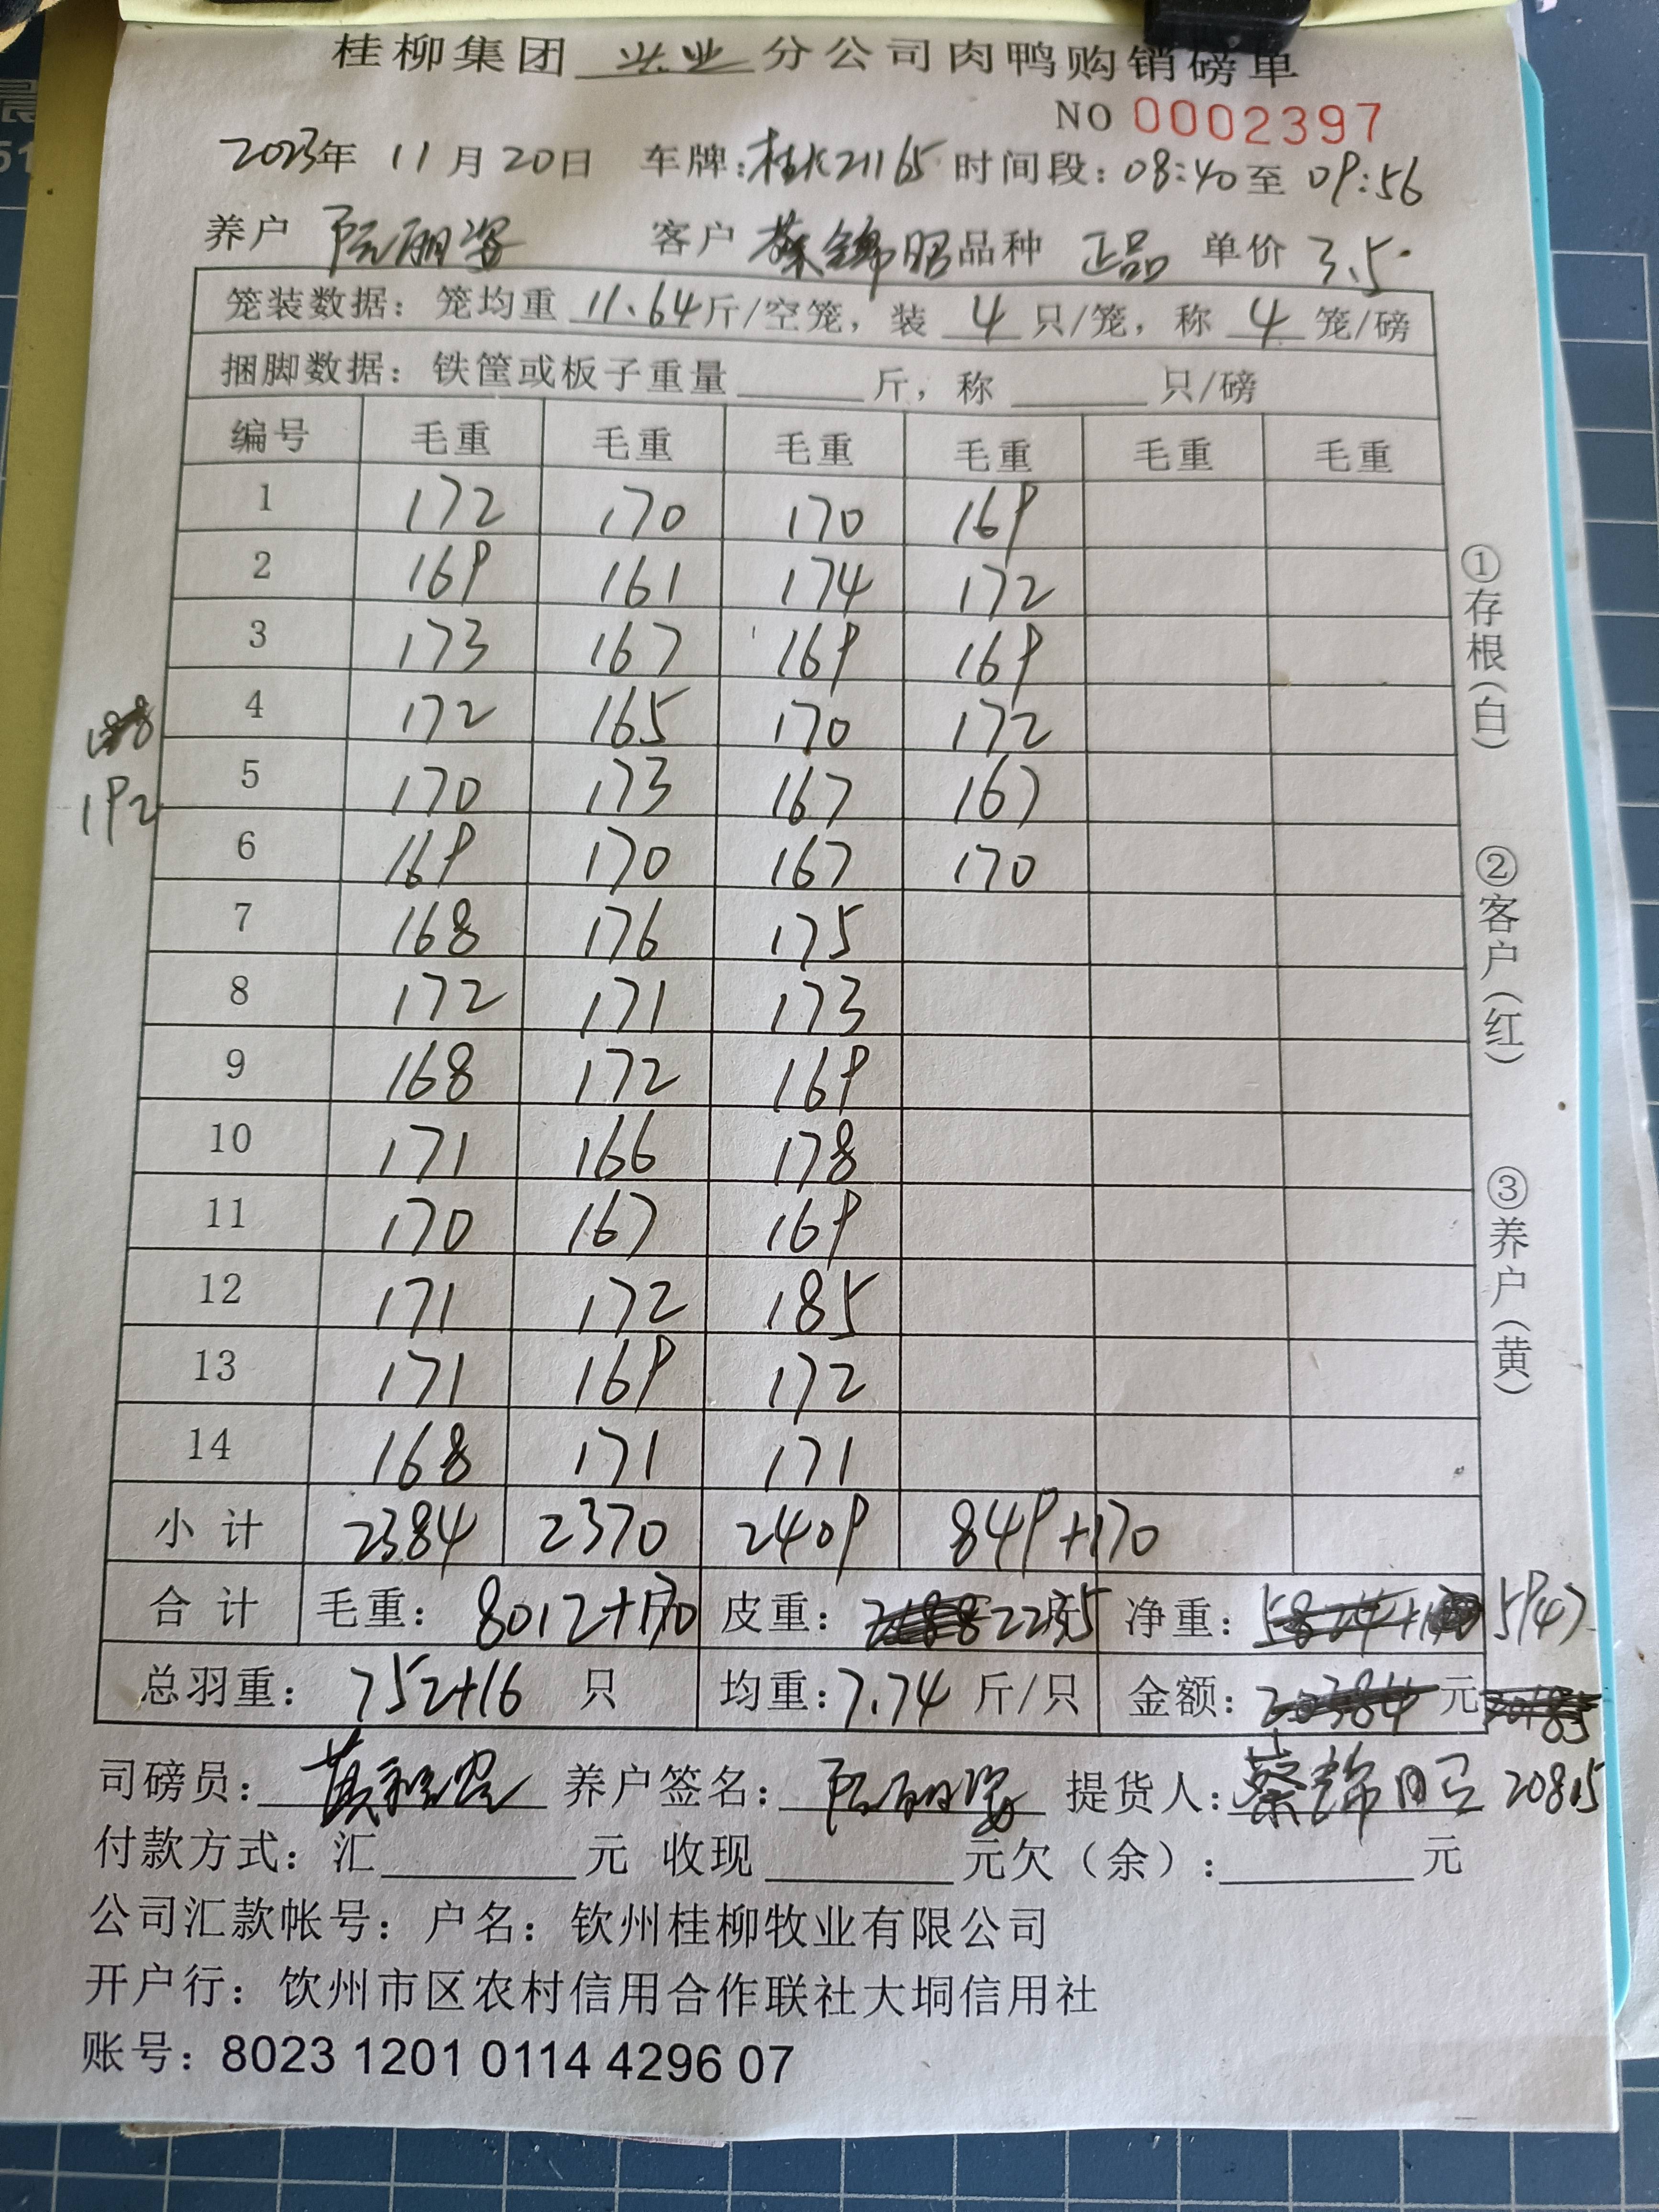 桂柳集团 兴业 分公司肉鸭购销磅单
NO 0002397
2023年 11月20日 车牌:桂K21165 时间段:08:40至09:56
养户 阮丽姿 客户 蔡锦昭 品种 正品 单价 3.5
笼装数据:笼均重 11.64斤/空笼,装 4 只/笼,称 4 笼/磅
捆脚数据:铁筐或板子重量______斤,称______只/磅
编号 毛重 毛重 毛重 毛重 毛重 毛重
1 172 170 170 169
2 169 161 174 172
3 173 167 169 169
4 172 165 170 172
5 170 173 167 167
6 169 170 167 170
7 168 176 175
8 172 171 173
9 168 172 169
10 171 166 178
11 170 167 169
12 171 172 185
13 171 169 172
14 168 171 171
小计 2384 2370 2409 849+170
合计 毛重:8012+170 皮重:2235 净重:5947
总羽重:752+16 只 均重:7.74斤/只 金额:20384元 20185
司磅员: 养户签名:阮丽姿 提货人:蔡锦昭 20815
付款方式:汇______元 收现______元欠(余):______元
公司汇款帐号:户名:钦州桂柳牧业有限公司
开户行:饮州市区农村信用合作联社大垌信用社
账号:8023 1201 0114 4296 07
188
192
①存根(白)
②客户(红)
③养户(黄)